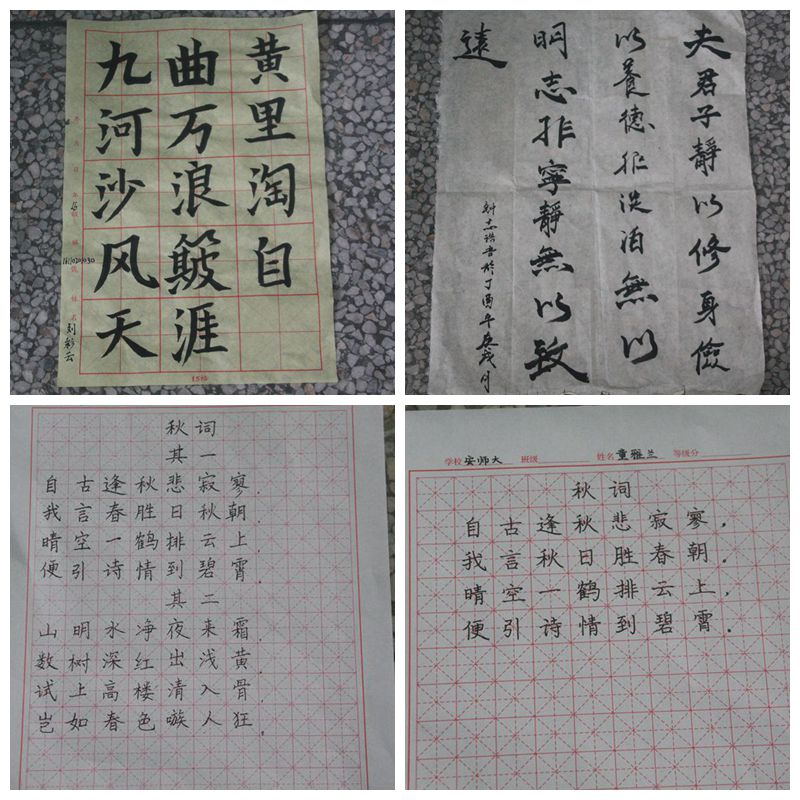 九曲黄
河万里
沙浪淘
风簸自
天涯
刘彩云
夫君子靜以修身儉
以養德非淡泊無以
明志非寧靜無以致
遠
秋词
其一
自古逢秋悲寂寥.
我言春胜日秋朝.
晴空一鹤排云上
便引诗情到碧霄.
其二
山明水净夜来霜.
数树深红出浅黄
试上高楼清入骨
岂如春色嗾人狂.
学校 安师大 班级 姓名 童雅兰 等级分
秋词
自古逢秋悲寂寥,
我言秋日胜春朝.
晴空一鹤排云上,
便引诗情到碧霄.